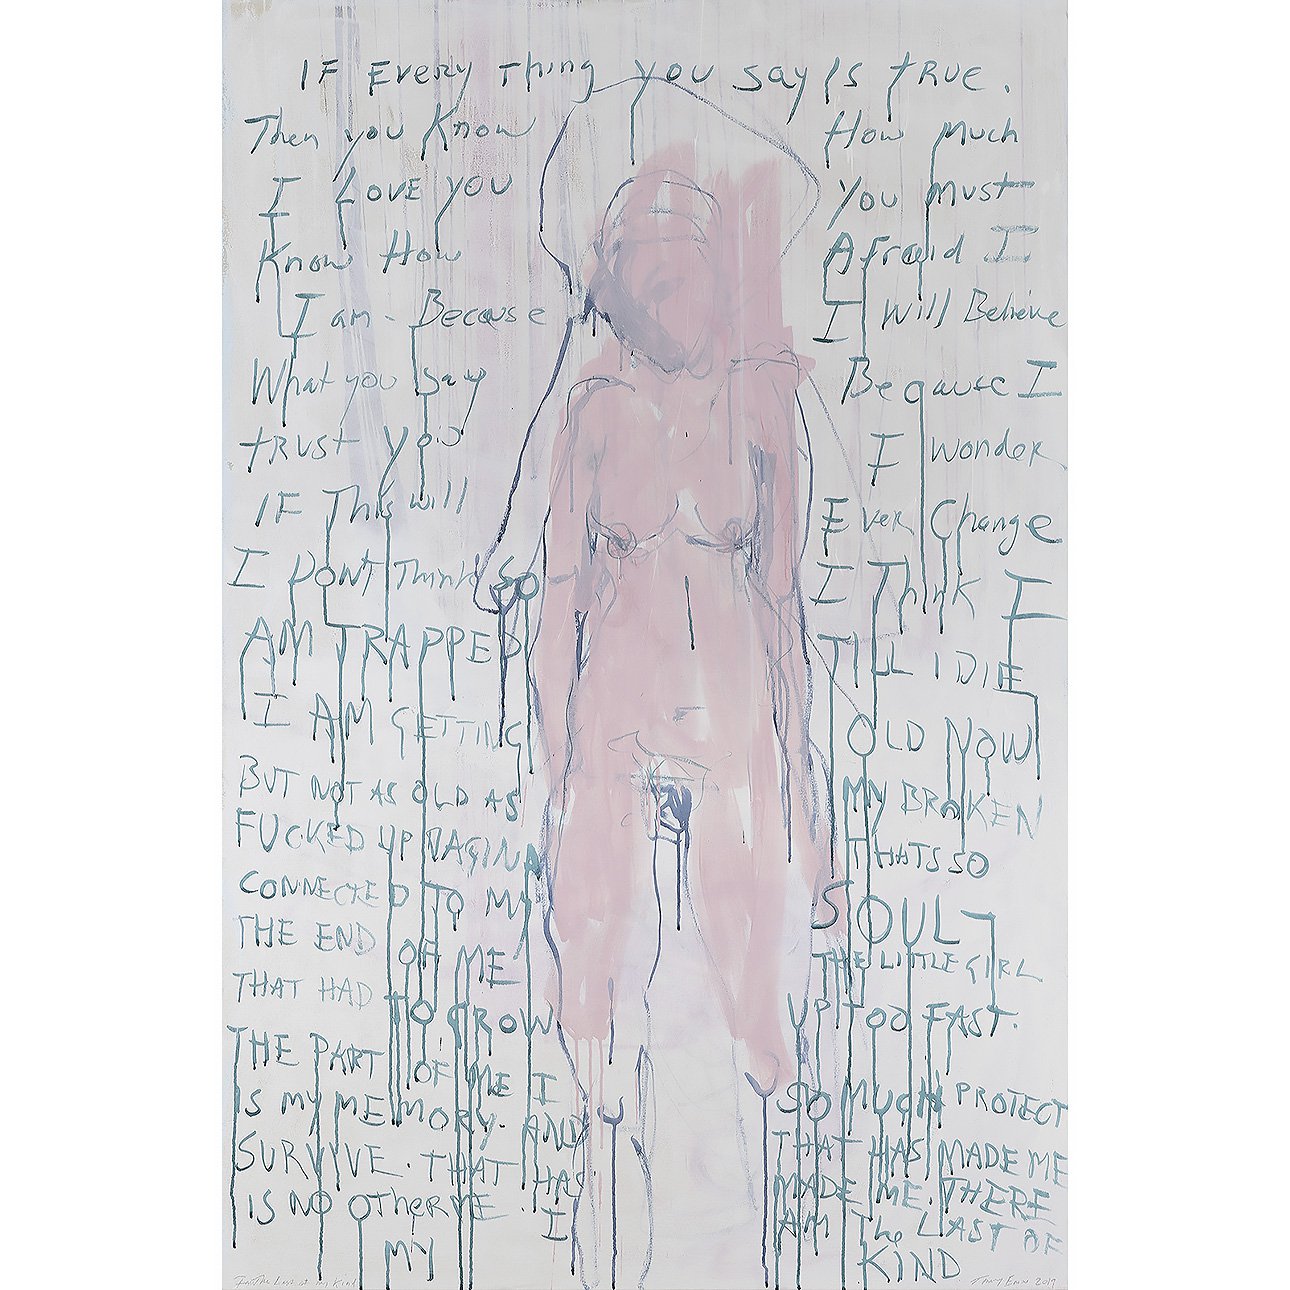 IF EVERY THING YOU SAY IS TRUE.
Then you Know How Much
I LOVE YOU YOU MUST
Know How Afraid I
I am - Because I Will Believe
What you say Because I
TRUST YOU I WONDER
IF This will Ever Change
I DONT Think SO I Think I
AM TRAPPED TILL I DIE
I AM GETTING OLD NOW
BUT NOT AS OLD AS MY BROKEN
FUCKED UP VAGINA THATS SO
CONNECTED TO MY SOUL
THE END OF ME THE LITTLE GIRL
THAT HAD TO GROW UP TOO FAST.
THE PART OF ME I SO MUCH PROTECT
IS MY MEMORY. AND THAT HAS MADE ME
SURVIVE. THAT HAS MADE ME. THERE
IS NO OTher ME. I AM The LAST OF
MY KIND
The Last of my Kind Tracey Emin 2019